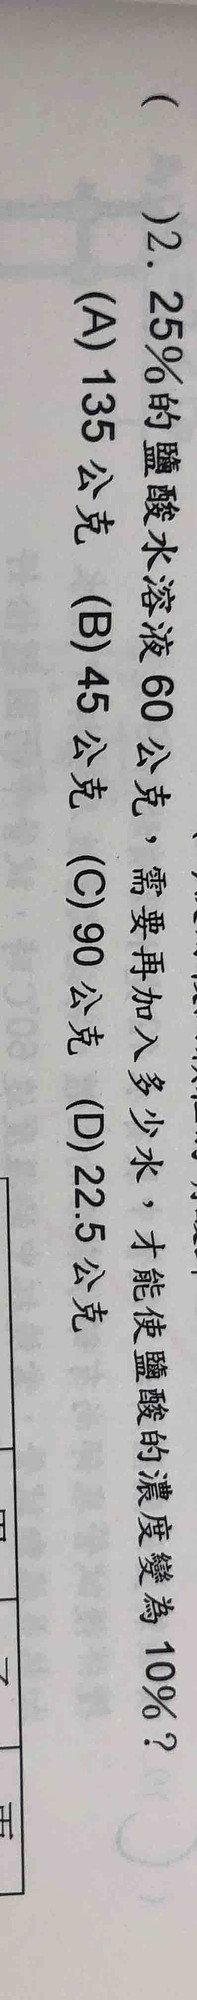 (　)2. 25%的鹽酸水溶液60公克，需要再加入多少水，才能使鹽酸的濃度變為10%？
(A) 135公克 (B) 45公克 (C) 90公克 (D) 22.5公克